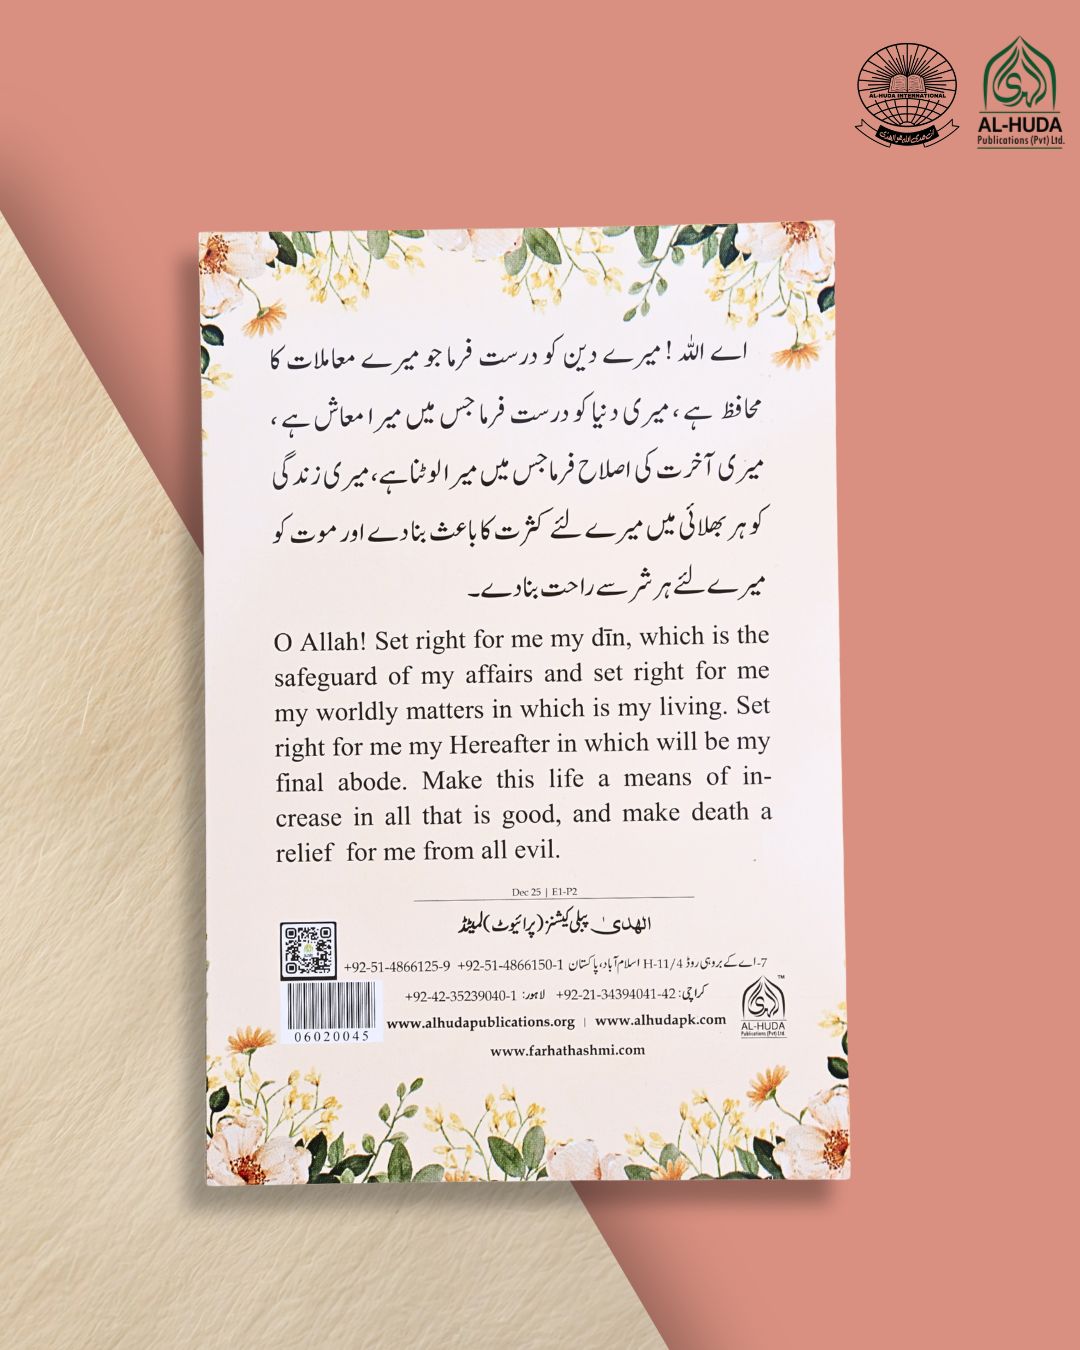 AL-HUDA INTERNATIONAL
الهدى
AL-HUDA
Publications (Pvt) Ltd.
اے اللہ! میرے دین کو درست فرما جو میرے معاملات کا
محافظ ہے، میری دنیا کو درست فرما جس میں میرا معاش ہے،
میری آخرت کی اصلاح فرما جس میں میرا لوٹنا ہے، میری زندگی
کو ہر بھلائی میں میرے لئے کثرت کا باعث بنا دے اور موت کو
میرے لئے ہر شر سے راحت بنا دے۔
O Allah! Set right for me my dīn, which is the
safeguard of my affairs and set right for me
my worldly matters in which is my living. Set
right for me my Hereafter in which will be my
final abode. Make this life a means of in-
crease in all that is good, and make death a
relief for me from all evil.
Dec 25 | E1-P2
الھدیٰ پبلی کیشنز (پرائیوٹ) لمیٹڈ
7-اے کے بروہی روڈ H-11/4 اسلام آباد، پاکستان +92-51-4866150-1 +92-51-4866125-9
کراچی: +92-21-34394041-42 لاہور: +92-42-35239040-1
www.alhudapublications.org | www.alhudapk.com
www.farhathashmi.com
06020045
الهدى
TM
AL-HUDA
Publications (Pvt) Ltd.